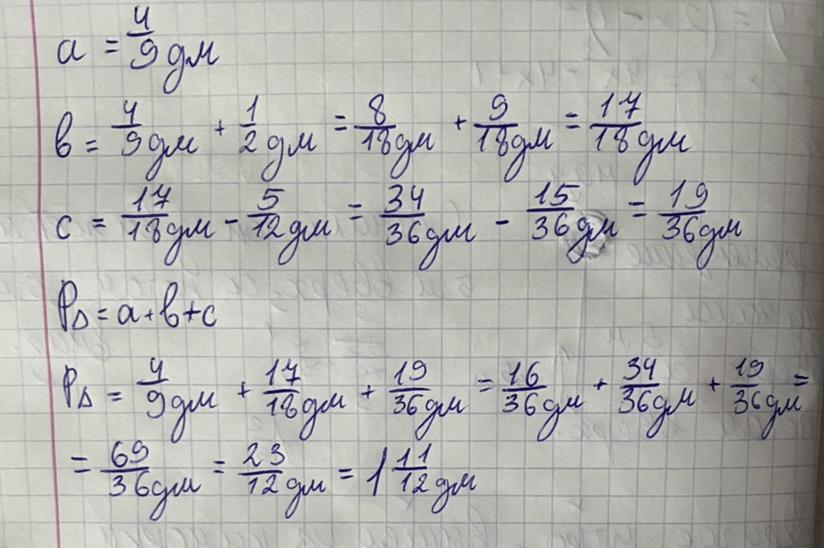 a = 4/9 дм
в = 4/9 дм + 1/2 дм = 8/18 дм + 9/18 дм = 17/18 дм
c = 17/18 дм - 5/12 дм = 34/36 дм - 15/36 дм = 19/36 дм
P△ = a + в + c
P△ = 4/9 дм + 17/18 дм + 19/36 дм = 16/36 дм + 34/36 дм + 19/36 дм =
= 69/36 дм = 23/12 дм = 1 11/12 дм